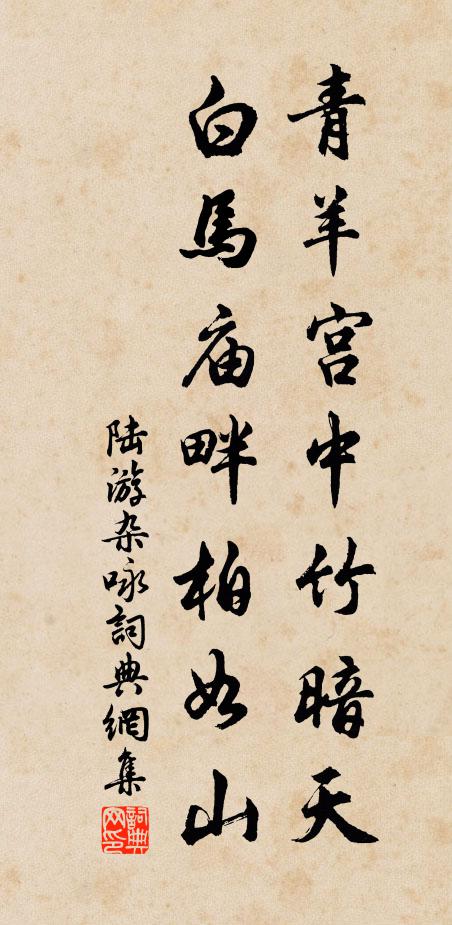 青羊宫中竹暗天
白馬庙畔柏如山
陆游杂咏詞典網集
詞典网印